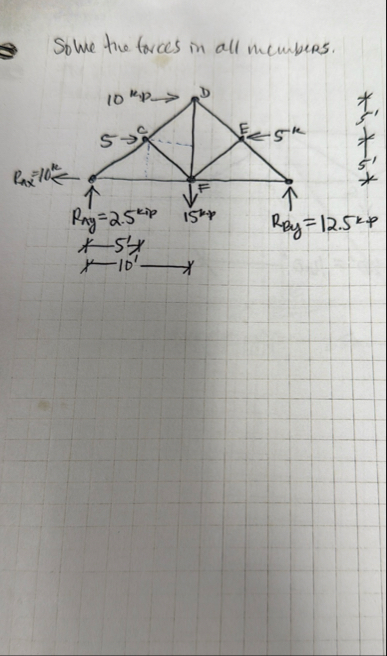 Solve the forces in all members.
10 kip → D
5 → C
E ← 5k
5'
5'
RAX=10k ←
F
RAy=2.5kip
15kip
RBy=12.5kip
5'
10'